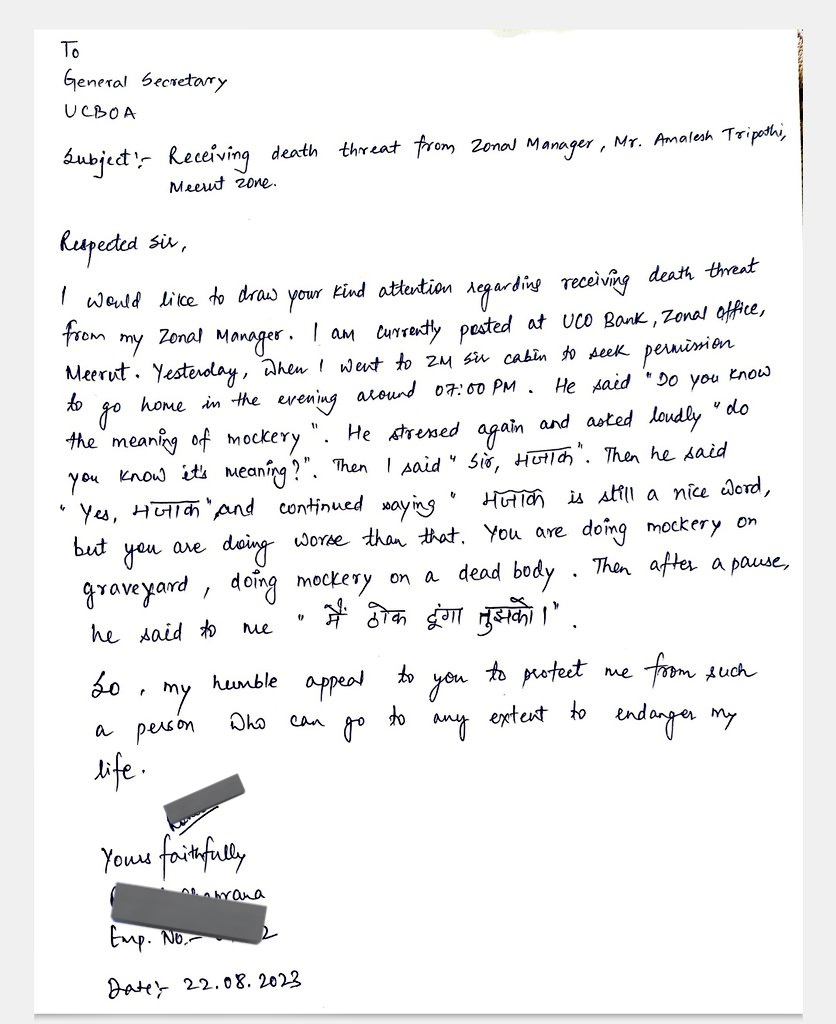 To
General Secretary
UCBOA
Subject:- Receiving death threat from Zonal Manager, Mr. Amalesh Tripathi,
Meerut zone.
Respected Sir,
I would like to draw your kind attention regarding receiving death threat
from my Zonal Manager. I am currently posted at UCO Bank, Zonal Office,
Meerut. Yesterday, when I went to ZM Sir cabin to seek permission
to go home in the evening around 07:00 PM. He said "Do you know
the meaning of mockery". He stressed again and asked loudly "do
you know it's meaning?". Then I said "Sir, मजाक". Then he said
"Yes, मजाक", and continued saying "मजाक is still a nice word,
but you are doing worse than that. You are doing mockery on
graveyard, doing mockery on a dead body. Then after a pause,
he said to me "मैं ठोक दूंगा तुझको।".
So, my humble appeal to you to protect me from such
a person who can go to any extent to endanger my
life.
Yours faithfully
Emp. No.- 2
Date:- 22.08.2023